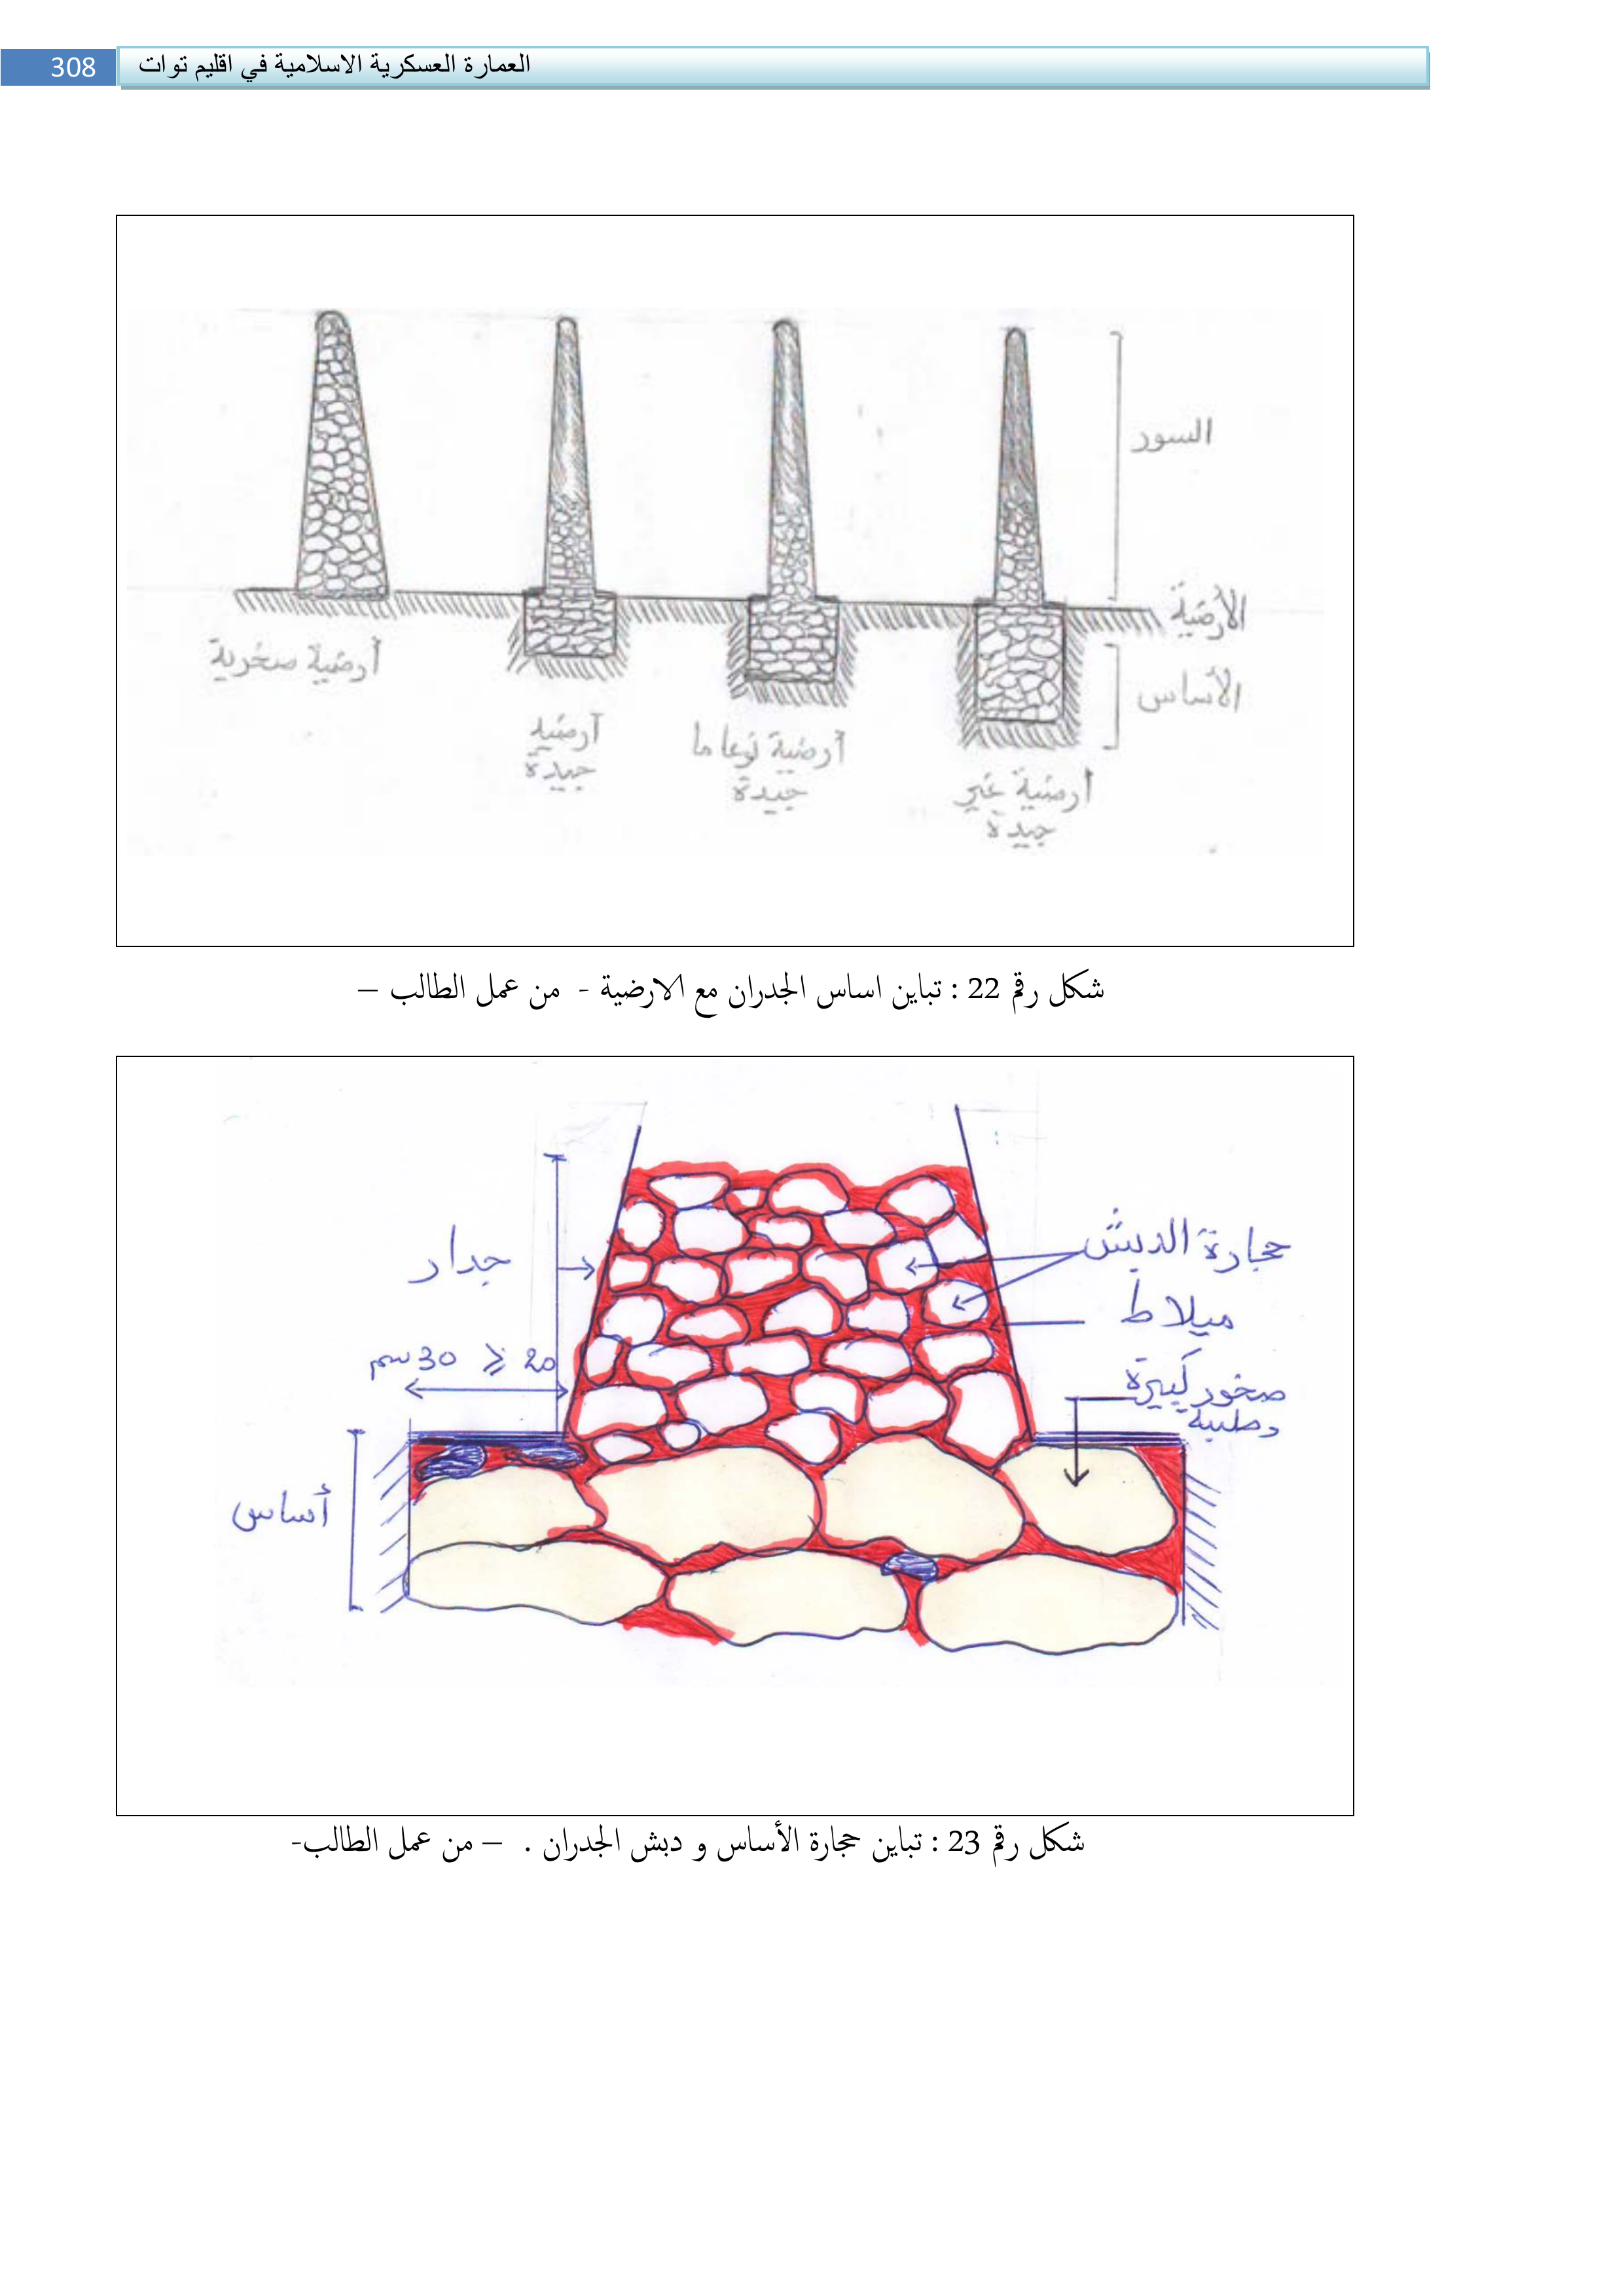 العمارة العسكرية الاسلامية في اقليم توات 308
السور
الأرضية
الأساس
أرضية غير
جيدة
أرضية نوعا ما
جيدة
أرضية
جيدة
أرضية صخرية
شكل رقم 22 : تباين اساس الجدران مع الارضية - من عمل الطالب –
حجارة الدبش
ميلاط
صخور كبيرة
وصلبة
جدار
20 ⩾ 30 سم
أساس
شكل رقم 23 : تباين حجارة الأساس و دبش الجدران . – من عمل الطالب-